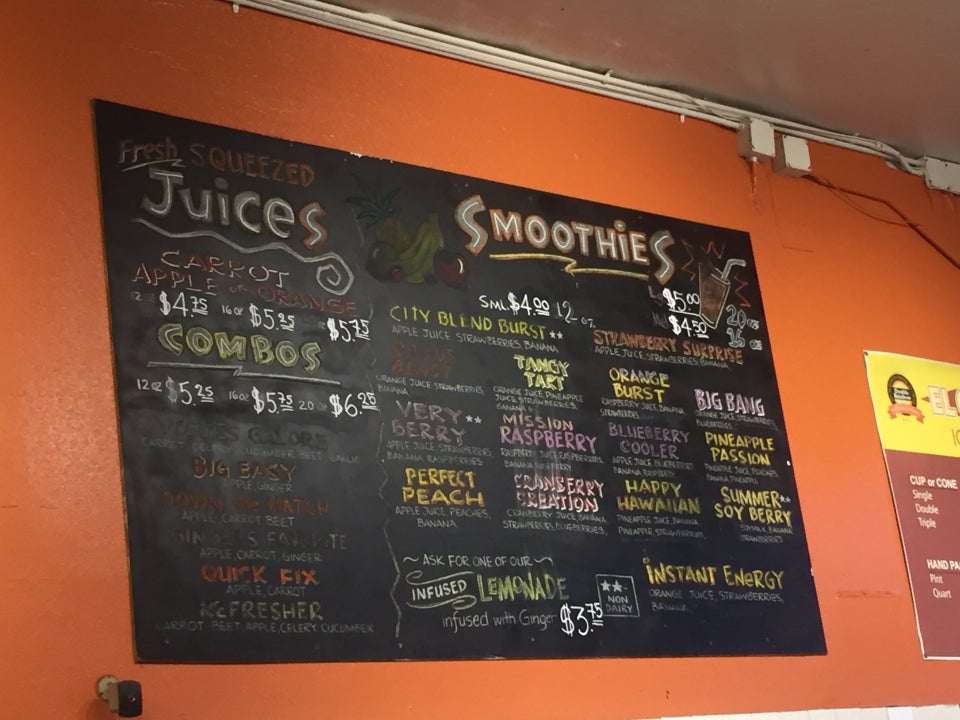 Fresh SQUEEZED
Juices
CARROT
APPLE or ORANGE
12 oz $4.75 16 oz $5.25 $5.75
COMBOS
12 oz $5.25 16 oz $5.75 20 oz $6.25
GALORE
CUCUMBER BEET, GARLIC
BIG EASY
APPLE, GINGER
DOWN the HATCH
APPLE, CARROT BELT
GINGER'S FAVORITE
APPLE, CARROT, GINGER
QUICK FIX
APPLE, CARROT
REFRESHER
CARROT BEET APPLE, CELERY CUCUMBER
SMOOTHiES
SML $4.00 12 oz.
$5.00 20 oz
$4.50 16 oz
CITY BLEND BURST **
APPLE JUICE STRAWBERRIES, BANANA
STRAWBERRY SURPRISE
APPLE, JUICE, STRAWBERRIES, BANANA
BURST
ORANGE JUICE STRAWBERRIES
BANANA
TANGY
TART
ORANGE JUICE PINEAPPLE
JUICE, STRAWBERRIES,
BANANA
ORANGE
BURST
RASPBERRY JUICE, BANANA
STRAWBERRIES
BIG BANG
ORANGE JUICE, STRAWBERRIES,
BLUEBERRIES
VERY **
BERRY
APPLE JUICE, STRAWBERRIES,
BANANA RASPBERRIES
MISSION
RASPBERRY
RASPBERRY JUICE, RASPBERRIES,
BANANA
BLUEBERRY
COOLER
APPLE JUICE, BLUEBERRIES
BANANA
PINEAPPLE
PASSION
PINEAPPLE JUICE, PEACHES,
BANANA, PINEAPPLE
PERFECT
PEACH
APPLE JUICE PEACHES,
BANANA
CRANBERRY
CREATION
CRANBERRY JUICE, BANANA,
STRAWBERRIES, BLUEBERRIES,
HAPPY
HAWAIIAN
PINEAPPLE JUICE, BANANA
PINEAPPLE, STRAWBERRIES
SUMMER **
SOY BERRY
SOYMILK, BANANA
STRAWBERRIES
~ ASK FOR ONE OF OUR ~
INFUSED LEMONADE
infused with Ginger $3.75
** NON
DAIRY
iNSTANT ENERGY
ORANGE JUICE, STRAWBERRIES,
BANANA
CUP or CONE
Single
Double
Triple
Pint
Quart